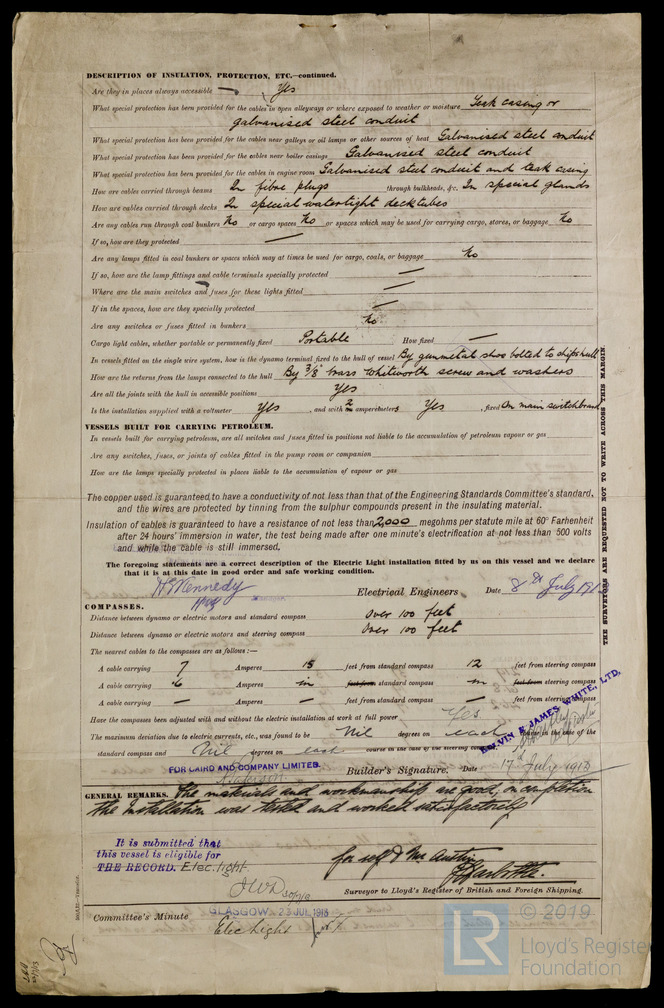 DESCRIPTION OF INSULATION, PROTECTION, ETC.—continued.
Are they in places always accessible — Yes
What special protection has been provided for the cables in open alleyways or where exposed to weather or moisture Teak casing or
galvanised steel conduit
What special protection has been provided for the cables near galleys or oil lamps or other sources of heat Galvanised steel conduit
What special protection has been provided for the cables near boiler casings Galvanised steel conduit
What special protection has been provided for the cables in engine room Galvanised steel conduit and teak casing
How are cables carried through beams In fibre plugs through bulkheads, &c. In special glands
How are cables carried through decks In special watertight deck tubes
Are any cables run through coal bunkers No or cargo spaces No or spaces which may be used for carrying cargo, stores, or baggage No
If so, how are they protected —
Are any lamps fitted in coal bunkers or spaces which may at times be used for cargo, coals, or baggage No
If so, how are the lamp fittings and cable terminals specially protected —
Where are the main switches and fuses for these lights fitted —
If in the spaces, how are they specially protected —
Are any switches or fuses fitted in bunkers No.
Cargo light cables, whether portable or permanently fixed Portable How fixed —
In vessels fitted on the single wire system, how is the dynamo terminal fixed to the hull of vessel By gunmetal shoe bolted to ships hull
How are the returns from the lamps connected to the hull By 3/8" brass Whitworth screw and washers
Are all the joints with the hull in accessible positions Yes
Is the installation supplied with a voltmeter Yes , and with 2 amperemeters Yes , fixed On main switchboard
VESSELS BUILT FOR CARRYING PETROLEUM.
In vessels built for carrying petroleum, are all switches and fuses fitted in positions not liable to the accumulation of petroleum vapour or gas
Are any switches, fuses, or joints of cables fitted in the pump room or companion
How are the lamps specially protected in places liable to the accumulation of vapour or gas
The copper used is guaranteed to have a conductivity of not less than that of the Engineering Standards Committee's standard,
and the wires are protected by tinning from the sulphur compounds present in the insulating material.
Insulation of cables is guaranteed to have a resistance of not less than 2,000 megohms per statute mile at 60° Farhenheit
after 24 hours' immersion in water, the test being made after one minute's electrification at not less than 500 volts
and while the cable is still immersed.
The foregoing statements are a correct description of the Electric Light installation fitted by us on this vessel and we declare
that it is at this date in good order and safe working condition.
Kennedy Electrical Engineers Date 8th July 191
COMPASSES.
Distance between dynamo or electric motors and standard compass Over 100 feet
Distance between dynamo or electric motors and steering compass Over 100 feet
The nearest cables to the compasses are as follows:—
A cable carrying 7 Amperes 15 feet from standard compass 12 feet from steering compass
A cable carrying .6 Amperes in feet from standard compass in feet from steering compass
A cable carrying — Amperes — feet from standard compass — feet from steering compass
Have the compasses been adjusted with and without the electric installation at work at full power Yes
The maximum deviation due to electric currents, etc., was found to be Nil degrees on each course in the case of the
standard compass and Nil degrees on each course in the case of the steering compass
KELVIN & JAMES WHITE, LTD.
FOR CAIRD AND COMPANY LIMITED.
Builder's Signature. Date 17th July 1913
GENERAL REMARKS. The materials and workmanship are good, on completion
the installation was tested and worked satisfactorily
It is submitted that
this vessel is eligible for
THE RECORD. Elec. light
for self & Mr Austin
Surveyor to Lloyd's Register of British and Foreign Shipping.
Committee's Minute GLASGOW 23 JUL 1913
Elec Light
THE SURVEYORS ARE REQUESTED NOT TO WRITE ACROSS THIS MARGIN.
© 2019
LR
Lloyd's Register
Foundation